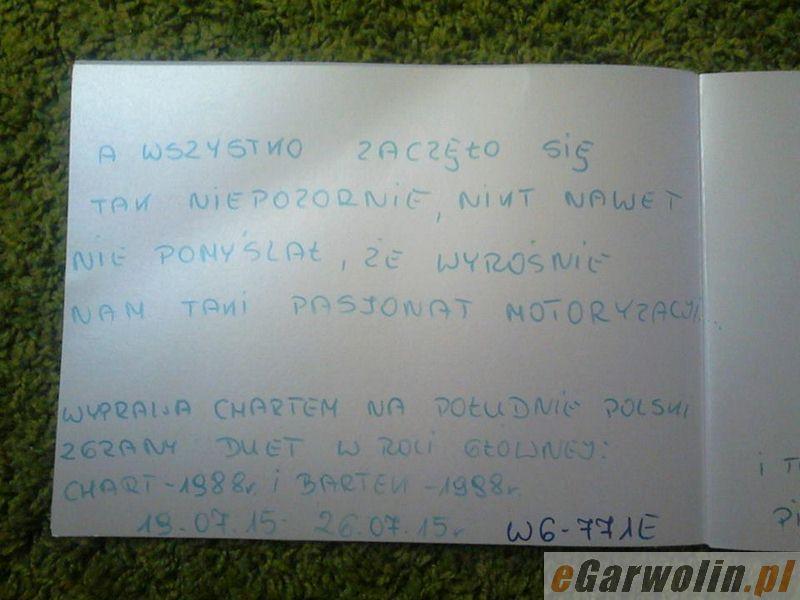 A WSZYSTKO ZACZĘŁO SIĘ
TAK NIEPOZORNIE, NIKT NAWET
NIE POMYŚLAŁ, ŻE WYROŚNIE
NAM TAKI PASJONAT MOTORYZACJI...
WYPRAWA CHARTEM NA POŁUDNIE POLSKI
ZGRANY DUET W ROLI GŁÓWNEJ:
CHART-1988r. i BARTEK-1988r.
19.07.15- 26.07.15r W6-771E
i T
Pi
eGarwolin.pl